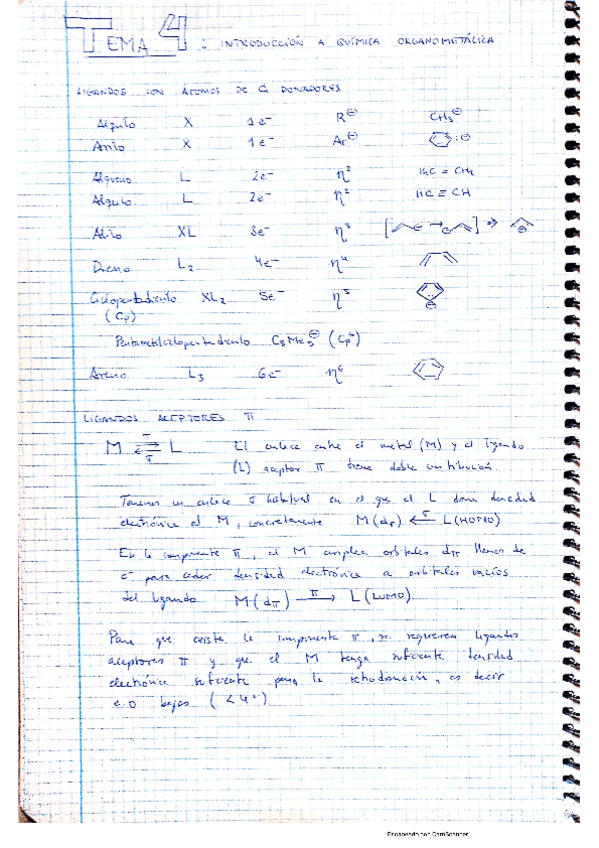 TEMA 4 : INTRODUCCIÓN A QUÍMICA ORGANOMETÁLICA
LIGANDOS CON ÁTOMOS DE C DONADORES
Alquilo X 1e⁻ R⊖ CH₃⊖
Arilo X 1e⁻ Ar⊖ :⊖
Alqueno L 2e⁻ η² H₂C = CH₂
Alquilo L 2e⁻ η² HC ≡ CH
Alilo XL 3e⁻ η³
Dieno L₂ 4e⁻ η⁴
Ciclopentadienilo XL₂ 5e⁻ η⁵
(Cp)
Pentametilciclopentadienilo C₅Me₅⊖ (Cp*)
Areno L₃ 6e⁻ η⁶
LIGANDOS ACEPTORES π
M ⇄ L El enlace entre el metal (M) y el ligando
(L) aceptor π tiene doble contribución.
Tenemos un enlace σ habitual en el que el L dona densidad
electrónica al M, concretamente M(dσ) ←σ L(HOMO)
En la componente π, el M emplea orbitales dπ llenos de
e⁻ para ceder densidad electrónica a orbitales vacíos
del ligando M(dπ) →π L(LUMO)
Para que exista la componente π, se requieren ligandos
aceptores π y que el M tenga suficiente densidad
electrónica suficiente para la retrodonación, es decir
e.o bajos (<4⁺)
Escaneado con CamScanner